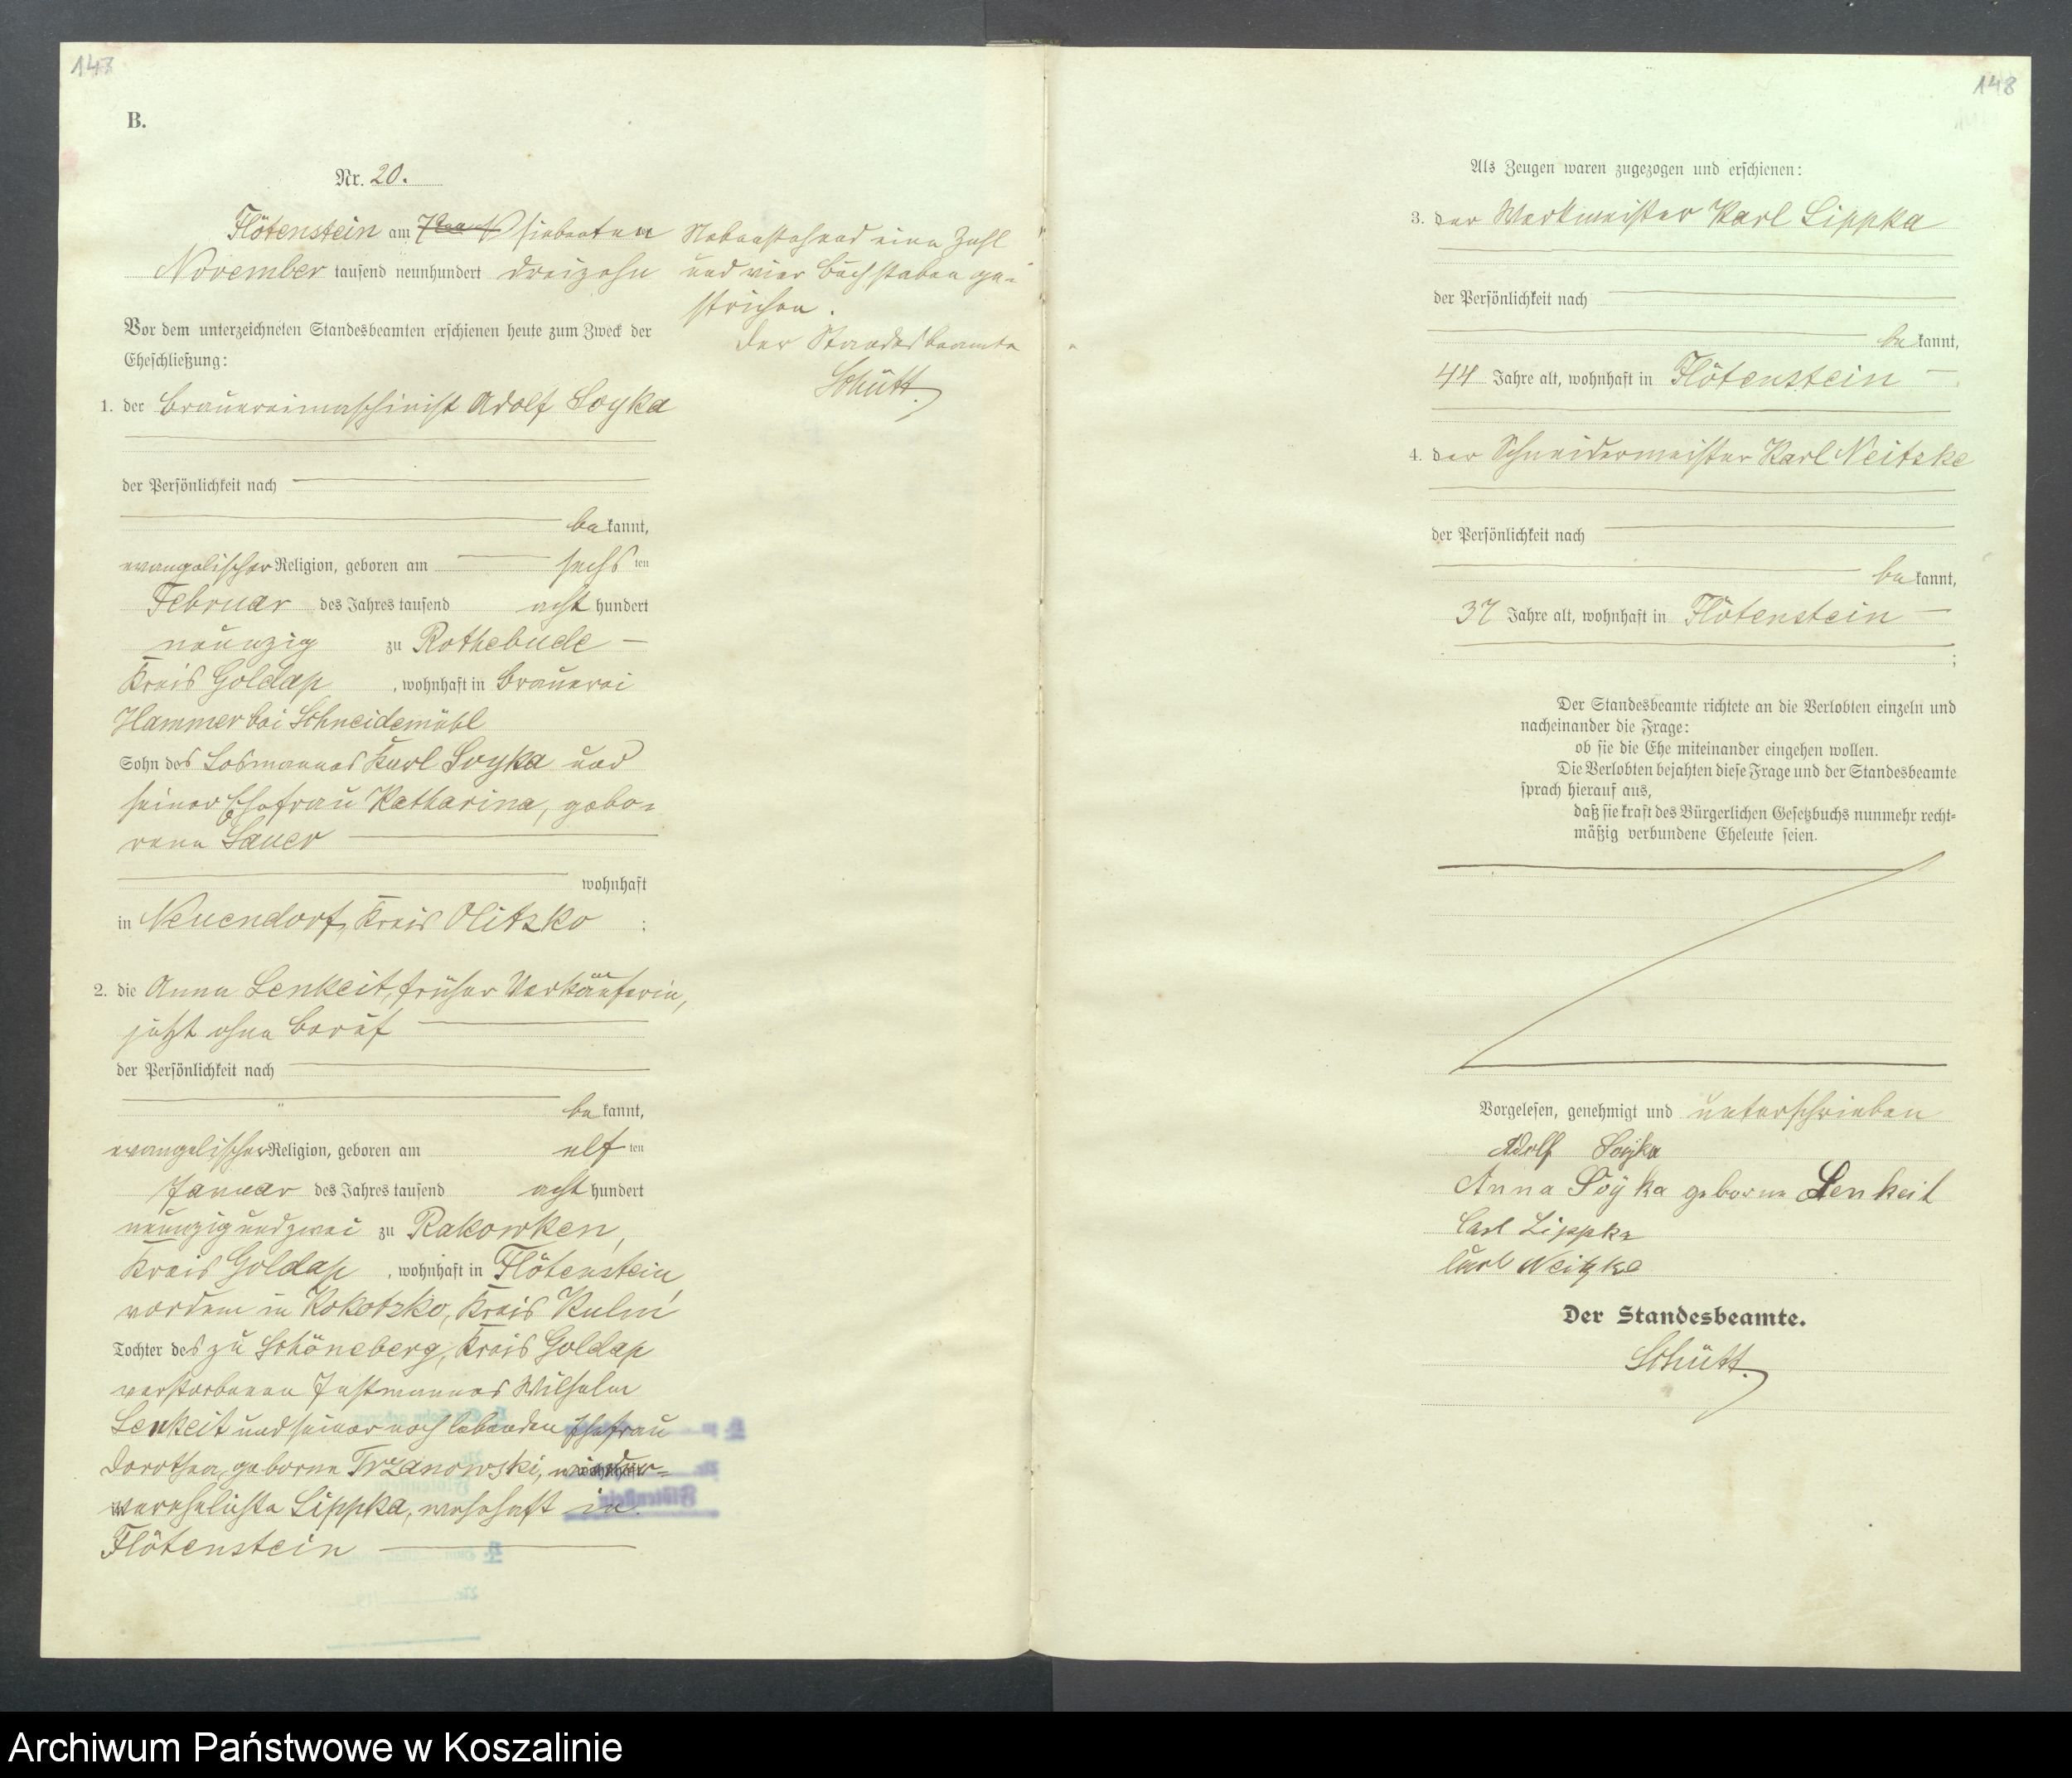 147
B.
Nr. 20.
Flötenstein am siebenten
November tausend neunhundert dreizehn
Vor dem unterzeichneten Standesbeamten erschienen heute zum Zweck der
Eheschließung:
1. der Brauereimaschinist Adolf Soyka
der Persönlichkeit nach
be kannt,
evangelischer Religion, geboren am sechs ten
Februar des Jahres tausend acht hundert
neunzig zu Rothebude
Kreis Goldap, wohnhaft in Brauerei
Hammer bei Schneidemühl
Sohn des Losmannes Karl Soyka und
seiner Ehefrau Katharina, gebo-
rene Sauer
wohnhaft
in Neuendorf, Kreis Olitzko;
2. die Anna Lenkeit, früher Verkäuferin,
jetzt ohne Beruf
der Persönlichkeit nach
be kannt,
evangelischer Religion, geboren am elf ten
Januar des Jahres tausend acht hundert
neunzig und zwei zu Rakowken,
Kreis Goldap, wohnhaft in Flötenstein,
vordem in Kokotzko, Kreis Kulm
Tochter des zu Schöneberg, Kreis Goldap
verstorbenen Instmannes Wilhelm
Lenkeit und seiner noch lebenden Ehefrau
Dorothea, geborne Trzanowski, wieder-
verehelichte Lippka, wohnhaft in
Flötenstein
Nebenstehend eine Zahl
und vier Buchstaben ge-
strichen.
Der Standesbeamte
Schütt.
148
Als Zeugen waren zugezogen und erschienen:
3. der Werkmeister Karl Lippka
der Persönlichkeit nach
be kannt,
44 Jahre alt, wohnhaft in Flötenstein
4. der Schneidermeister Karl Neitzke
der Persönlichkeit nach
be kannt,
37 Jahre alt, wohnhaft in Flötenstein
;
Der Standesbeamte richtete an die Verlobten einzeln und
nacheinander die Frage:
ob sie die Ehe miteinander eingehen wollen.
Die Verlobten bejahten diese Frage und der Standesbeamte
sprach hierauf aus,
daß sie kraft des Bürgerlichen Gesetzbuchs nunmehr recht-
mäßig verbundene Eheleute seien.
Vorgelesen, genehmigt und unterschrieben
Adolf Soyka
Anna Soÿka geborne Lenkeit
Carl Lippka
Carl Neitzke
Der Standesbeamte.
Schütt.
Archiwum Państwowe w Koszalinie